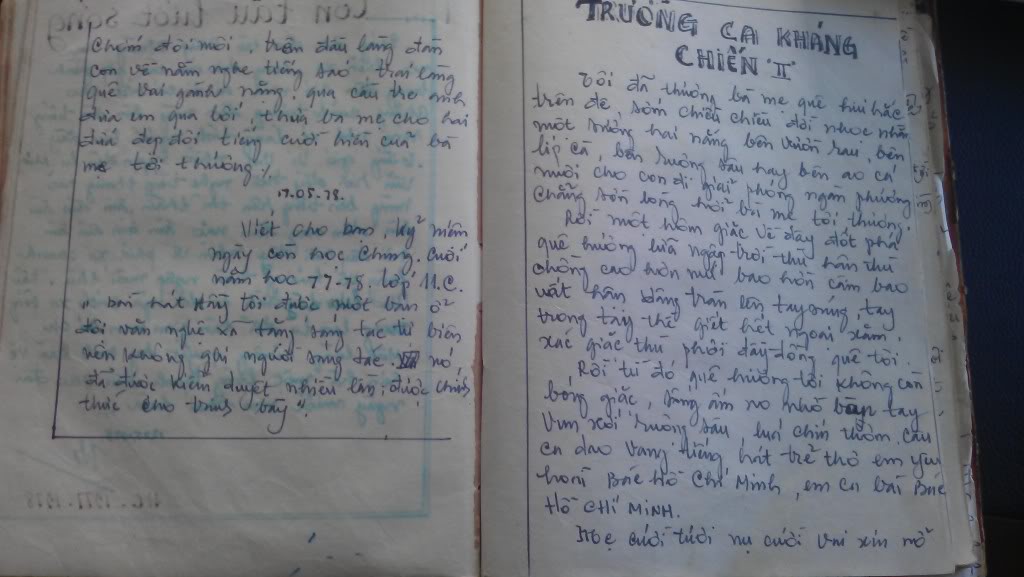 chấm đôi môi, trên đầu làng đàn
con về nằm nghe tiếng sáo, trai làng
quê vai gánh nặng qua cầu tre anh
đưa em qua lối, thưa ba mẹ cho hai
đứa đẹp đôi tiếng cười hiền của bà
mẹ tôi thương
17.05.78.
Viết cho bạn, kỷ niệm
ngày còn học chung. cuối
năm học 77-78. lớp 11.C.
" bài hát này tôi được một bạn ở
đội văn nghệ xã tặng sáng tác tự biên
nên không ghi người sáng tác nó
đã được kiểm duyệt nhiều lần, được chính
thức cho trình bày "
11C. 1977-1978
TRƯỜNG CA KHÁNG
CHIẾN II
Tôi đã thương bà mẹ quê hiu hắc
trên đê, sớm chiều chiều đôi nhọc nhằn
một sương hai nắng bên vườn rau, bên
líp cà, bên ruộng sâu hay bên ao cá
nuôi cho con đi giải phóng ngàn phương
chẳng sờn lòng hỡi bà mẹ tôi thương.
Rồi một hôm giặc về đây đốt phá
quê hương lửa ngập-trời-thù hận thù
chồng cao hơn núi bao hờn căm bao
uất hận dâng tràn lên tay súng, tay
trong tay thề giết hết ngoại xâm.
xác giặc thù phơi đầy-đồng quê tôi.
Rồi từ đó quê hương tôi không còn
bóng giặc, sống ấm no nhờ bàn tay
vun xới ruộng sâu lúa chín thơm. câu
ca dao vang tiếng hát trẻ thơ em yêu
hoài Bác Hồ Chí Minh, em ca bài Bác
HỒ CHÍ MINH.
Mẹ cười tươi nụ cười vui xin mở